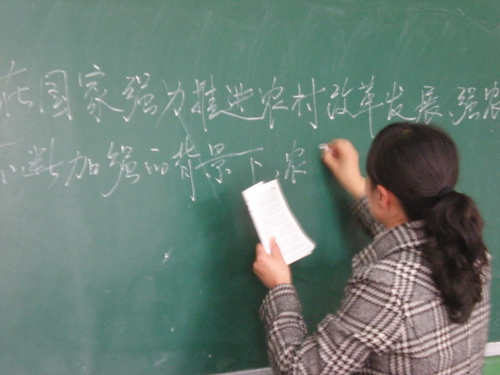 在国家强力推进农村改革发展、强农
不断加强的背景下,农